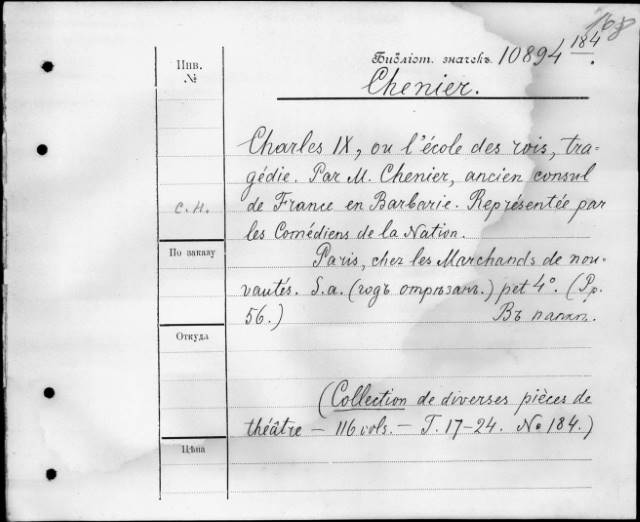 168
Библіот. значекъ 10894 184.
Инв.
№
Chenier.
Charles IX, ou l'école des rois, tra-
gédie. Par M. Chenier, ancien consul
с.н.
de France en Barbarie. Représentée par
les Comédiens de la Nation.
По заказу
Paris, chez les Marchands de nou-
vautés. S.a. (годъ отрѣзанъ.) pet 4°. (Pp.
56.) Въ папкѣ.
Откуда
(Collection de diverses pièces de
théâtre — 116 vols. — T. 17-24. № 184.)
Цѣна